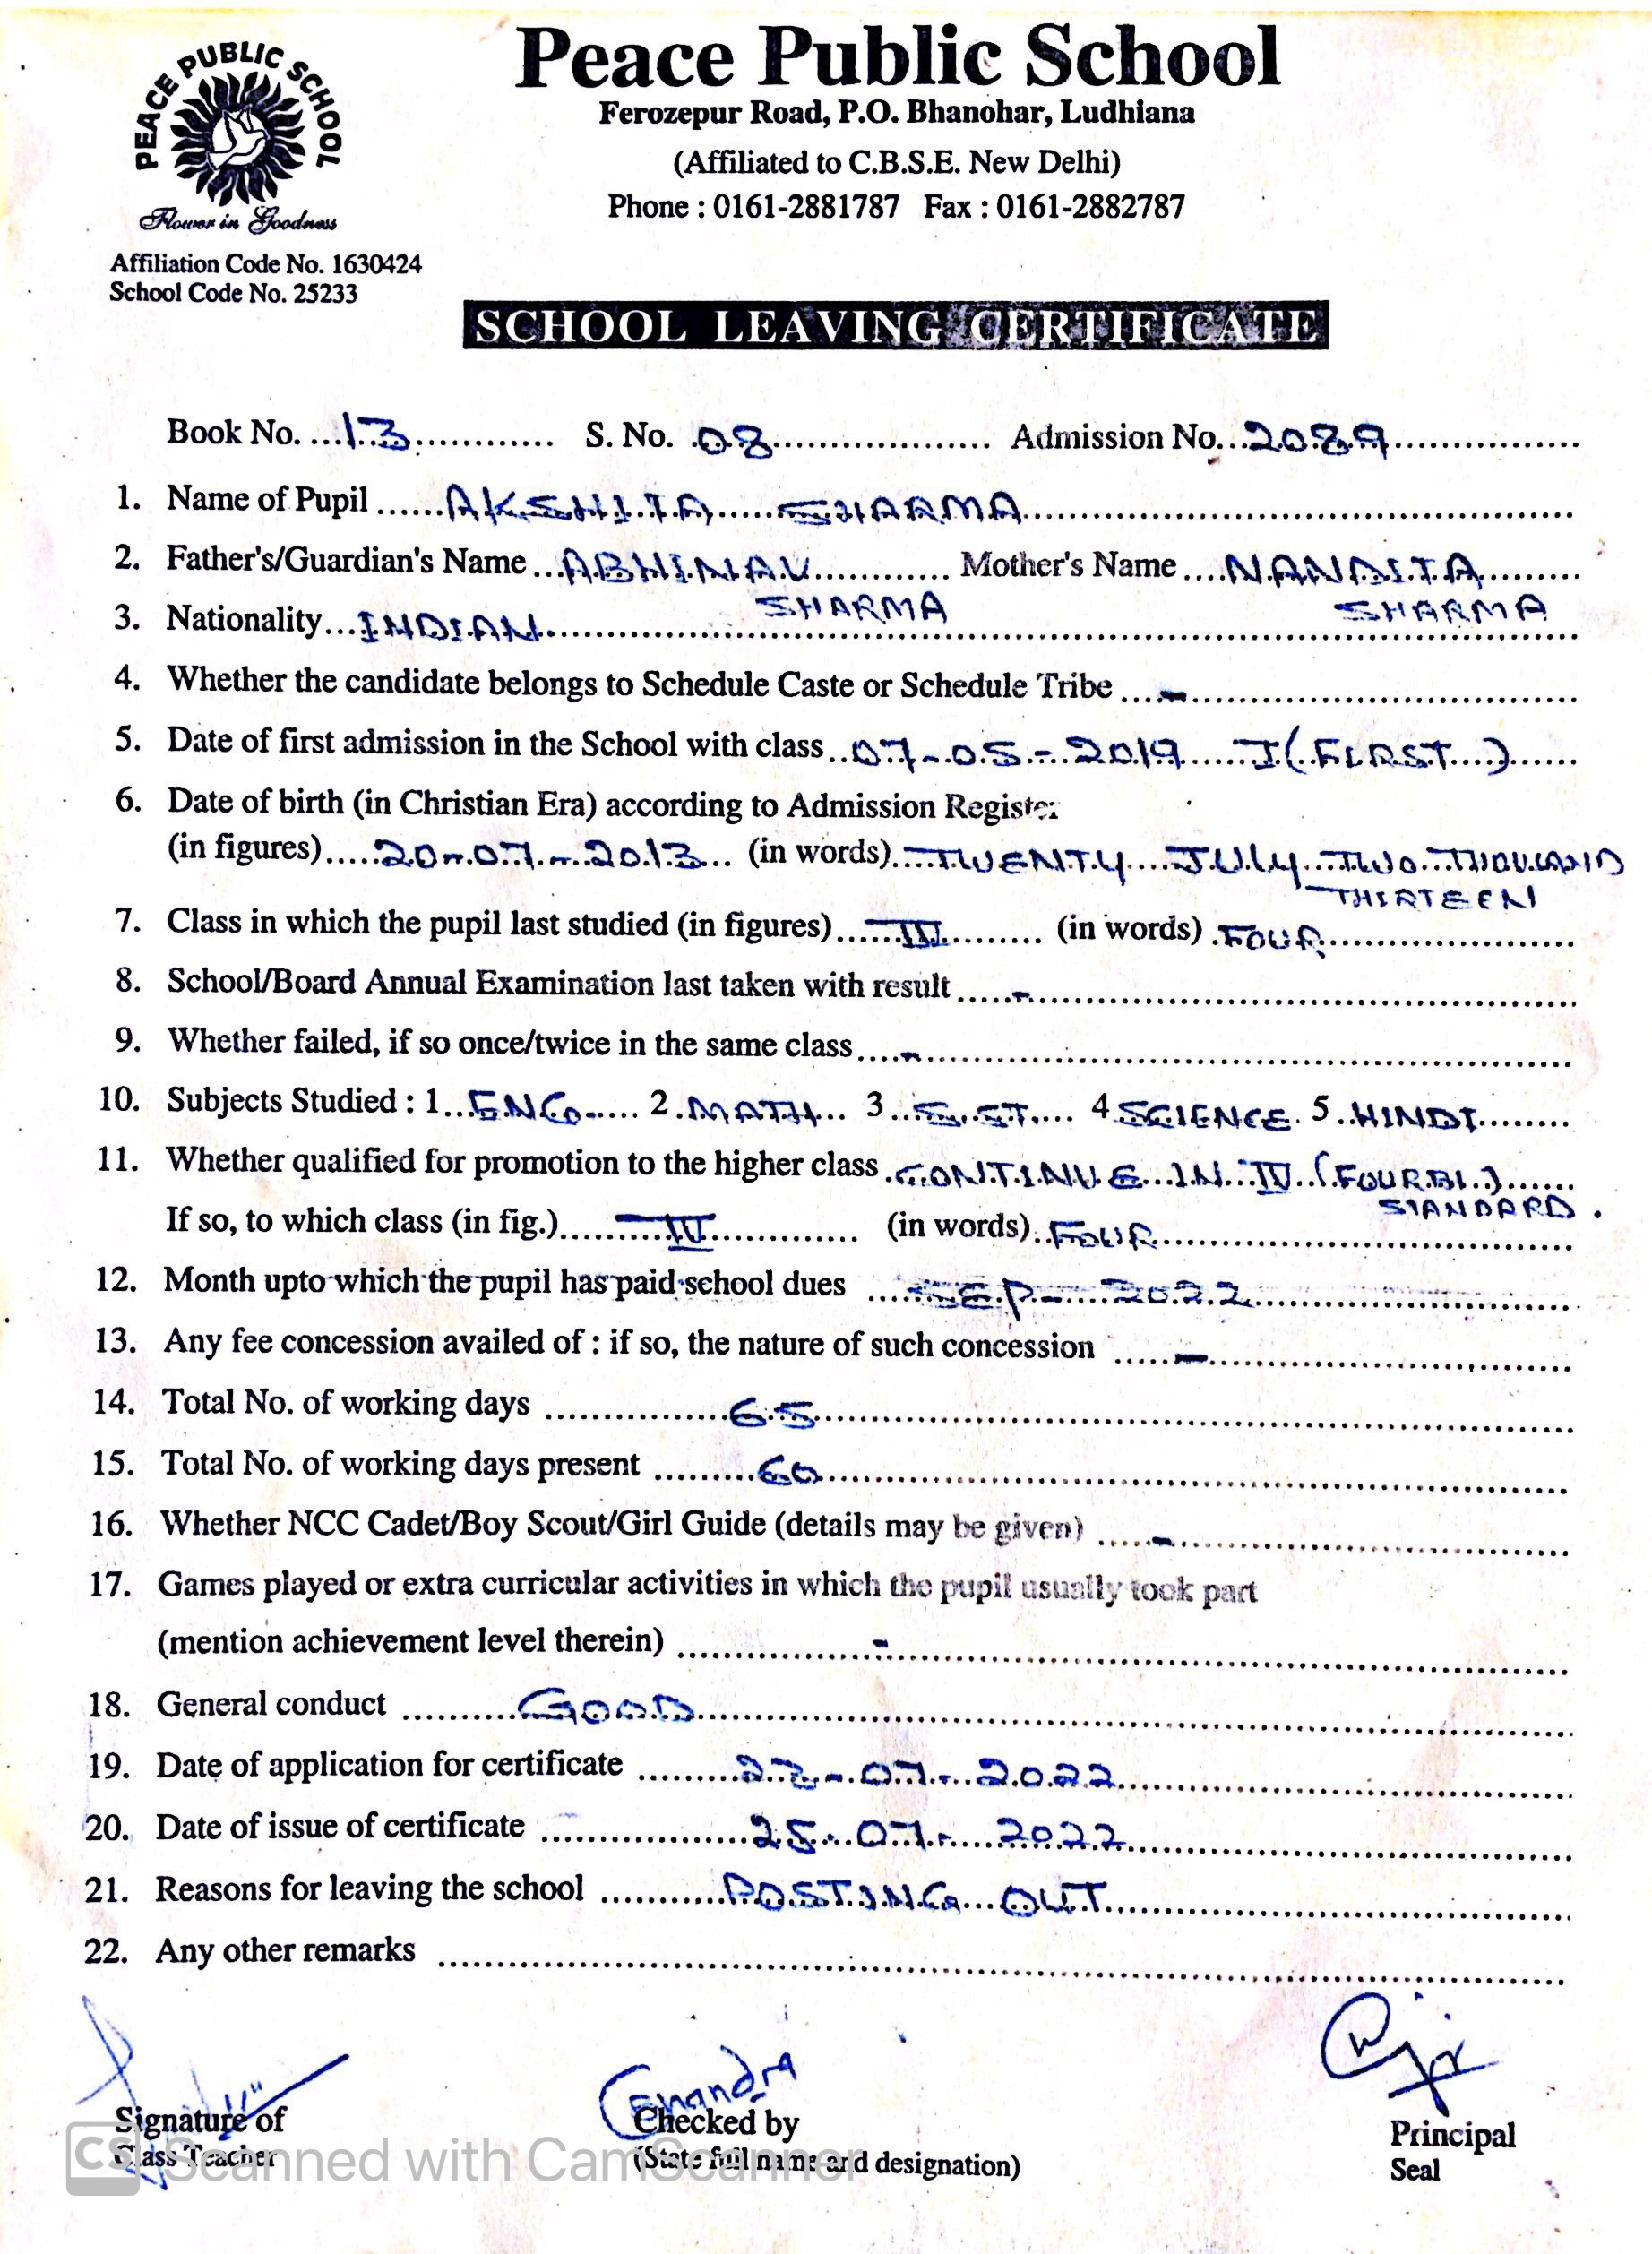 PEACE PUBLIC SCHOOL
Flower in Goodness
Affiliation Code No. 1630424
School Code No. 25233
Peace Public School
Ferozepur Road, P.O. Bhanohar, Ludhiana
(Affiliated to C.B.S.E. New Delhi)
Phone : 0161-2881787 Fax : 0161-2882787
SCHOOL LEAVING CERTIFICATE
Book No. 13 S. No. 08 Admission No. 2089
1. Name of Pupil AKSHITA SHARMA
2. Father's/Guardian's Name ABHINAV Mother's Name NANDITA
SHARMA SHARMA
3. Nationality INDIAN
4. Whether the candidate belongs to Schedule Caste or Schedule Tribe -
5. Date of first admission in the School with class 07-05-2019 I (FIRST)
6. Date of birth (in Christian Era) according to Admission Register
(in figures) 20-07-2013 (in words) TWENTY JULY TWO THOUSAND
THIRTEEN
7. Class in which the pupil last studied (in figures) IV (in words) FOUR
8. School/Board Annual Examination last taken with result -
9. Whether failed, if so once/twice in the same class -
10. Subjects Studied : 1. ENG. 2. MATH 3. S.ST. 4. SCIENCE 5. HINDI
11. Whether qualified for promotion to the higher class CONTINUE IN IV (FOURTH)
STANDARD.
If so, to which class (in fig.) IV (in words) FOUR
12. Month upto which the pupil has paid school dues SEP- 2022
13. Any fee concession availed of : if so, the nature of such concession -
14. Total No. of working days 65
15. Total No. of working days present 60
16. Whether NCC Cadet/Boy Scout/Girl Guide (details may be given) -
17. Games played or extra curricular activities in which the pupil usually took part
(mention achievement level therein) -
18. General conduct GOOD
19. Date of application for certificate 22-07-2022
20. Date of issue of certificate 25-07-2022
21. Reasons for leaving the school POSTING OUT
22. Any other remarks
Chandra
Signature of
Class Teacher
Checked by
(State full name and designation)
Principal
Seal
CS Scanned with CamScanner